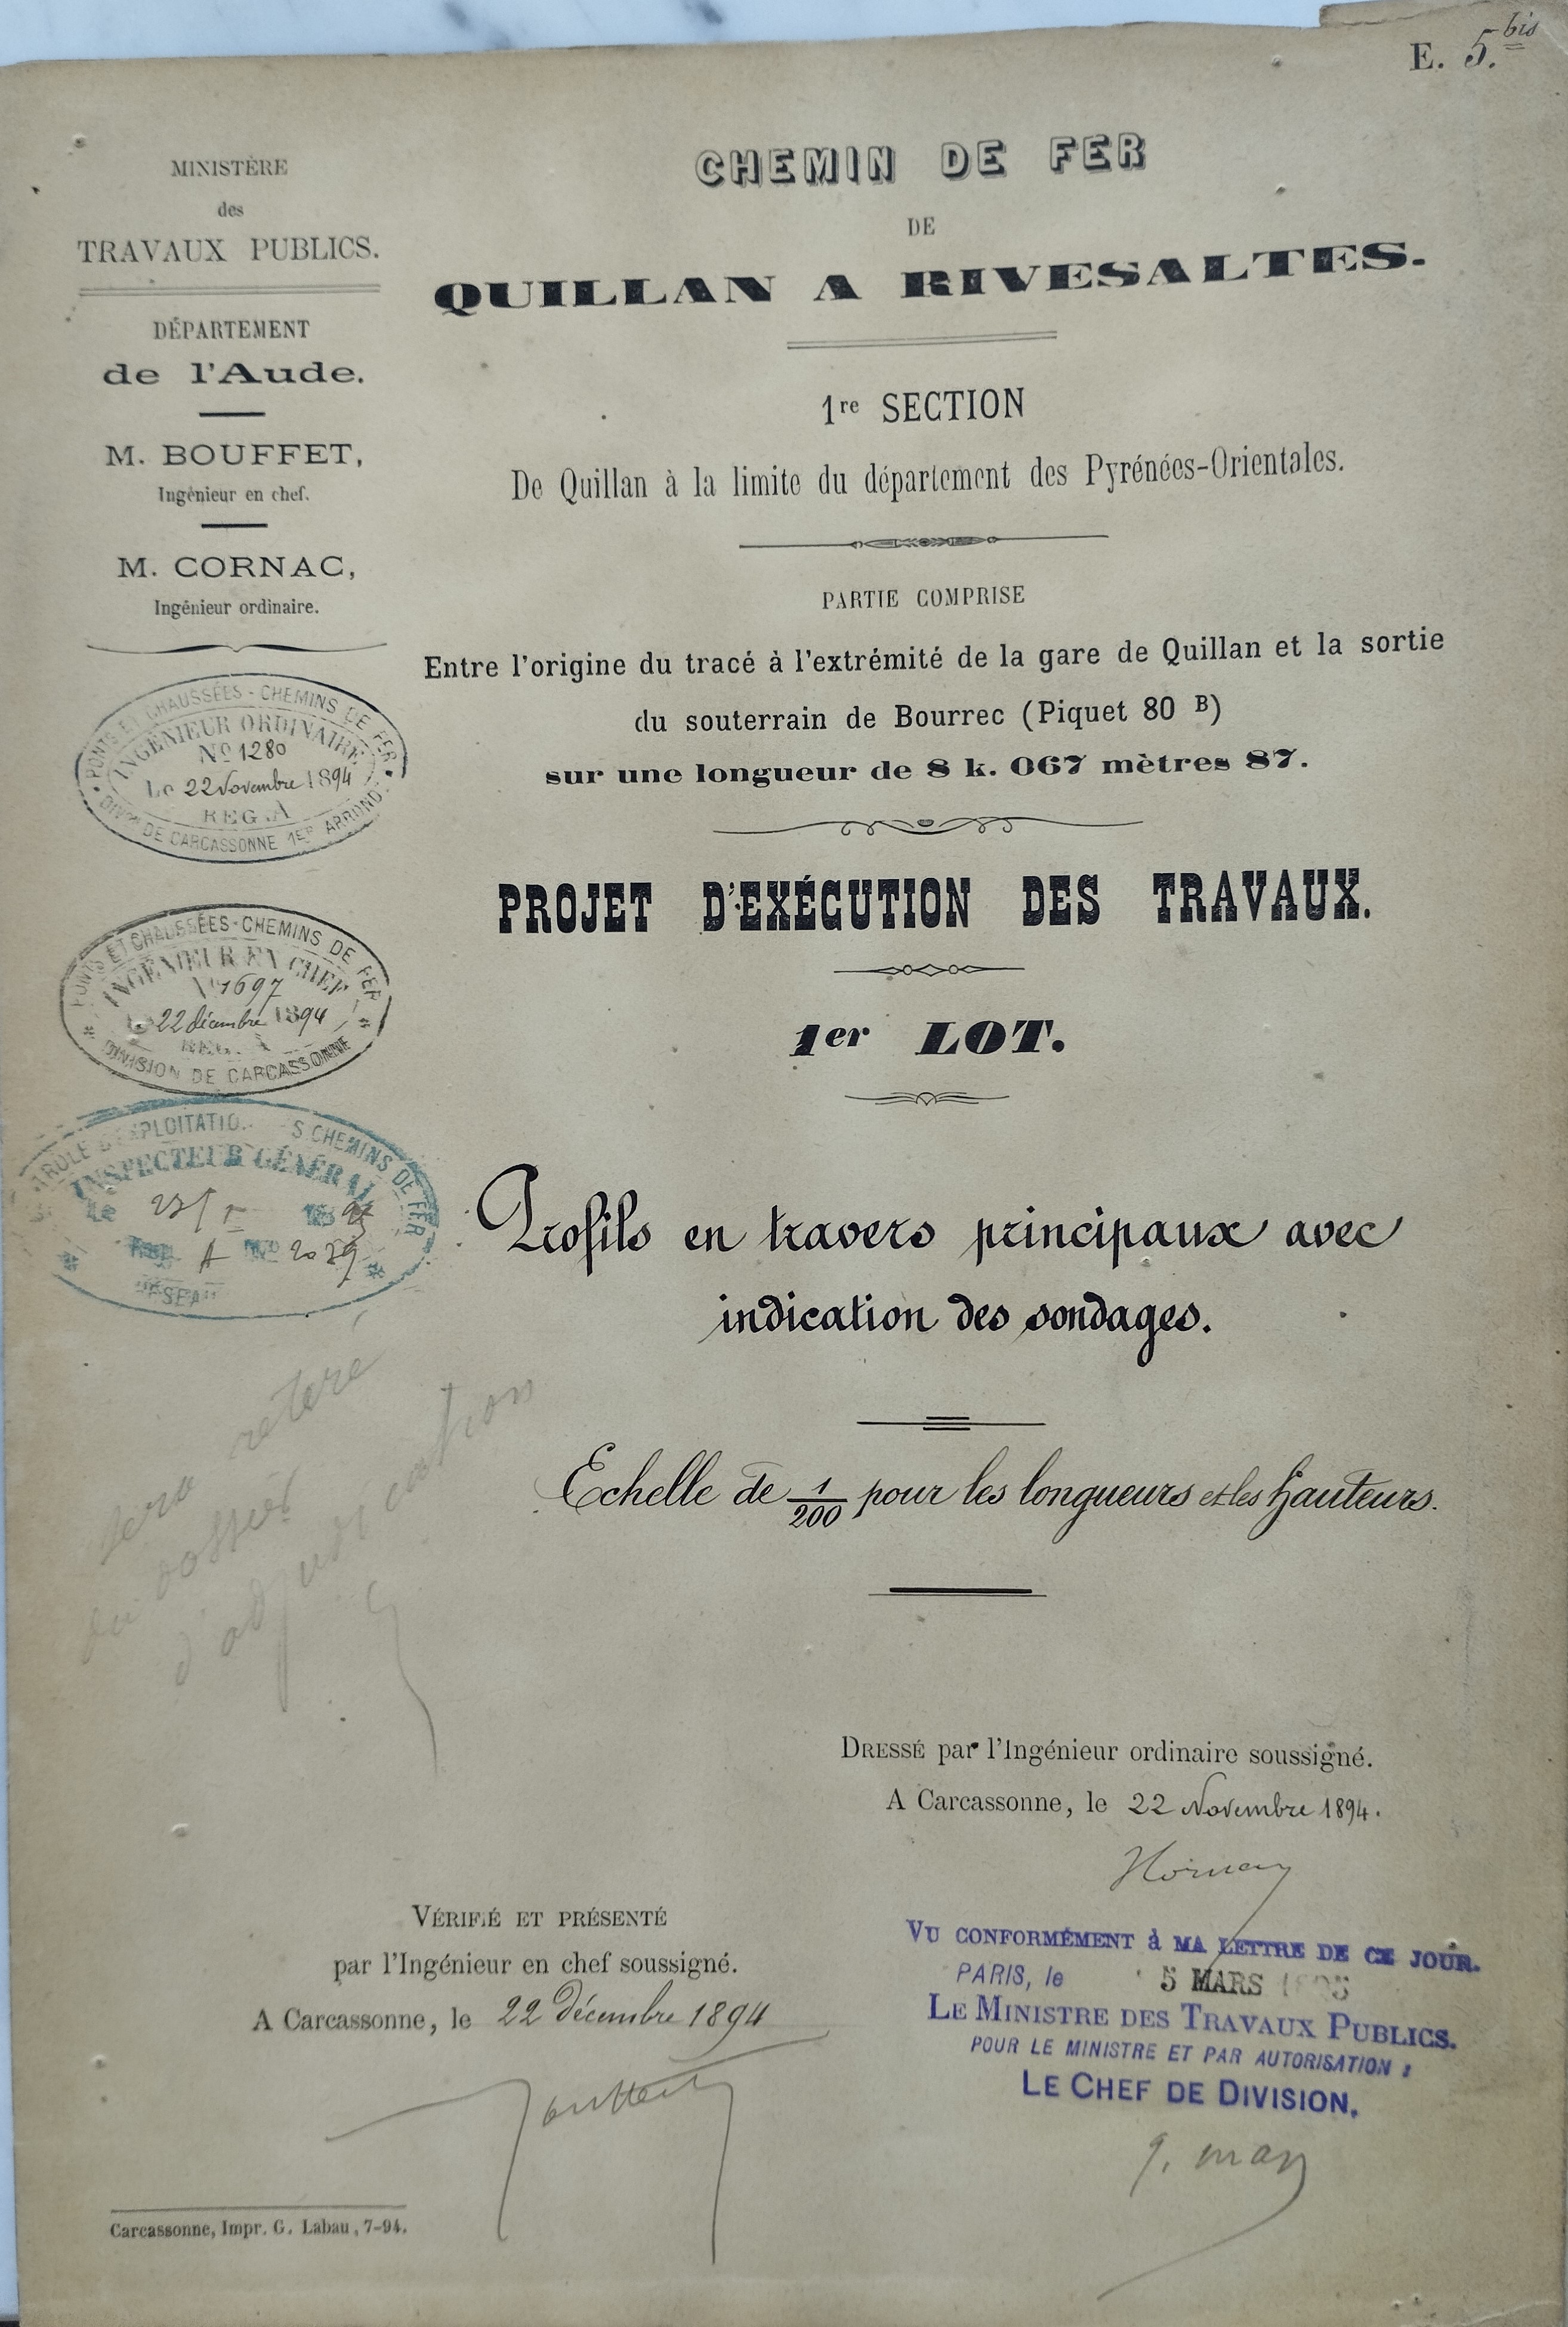 E. 5. bis
MINISTÈRE
des
TRAVAUX PUBLICS.
DÉPARTEMENT
de l'Aude.
M. BOUFFET,
Ingénieur en chef.
M. CORNAC,
Ingénieur ordinaire.
PONTS ET CHAUSSÉES - CHEMINS DE FER
INGÉNIEUR ORDINAIRE
No 1280
Le 22 Novembre 1894
REG. A
DIVON DE CARCASSONNE 1ER ARROND.
PONTS ET CHAUSSÉES - CHEMINS DE FER
INGÉNIEUR EN CHEF
No 1697
Le 22 décembre 1894
REG. A
DIVISION DE CARCASSONNE
CHEMINS DE FER
INSPECTEUR GÉNÉRAL
Le
A No 2039
sera retiré
du dossier
d'adjudication
CHEMIN DE FER
DE
QUILLAN A RIVESALTES.
1re SECTION
De Quillan à la limite du département des Pyrénées-Orientales.
PARTIE COMPRISE
Entre l'origine du tracé à l'extrémité de la gare de Quillan et la sortie
du souterrain de Bourrec (Piquet 80 B)
sur une longueur de 8 k. 067 mètres 87.
PROJET D'EXÉCUTION DES TRAVAUX.
1er LOT.
Profils en travers principaux avec
indication des sondages.
Echelle de 1/200 pour les longueurs et les hauteurs.
DRESSÉ par l'Ingénieur ordinaire soussigné.
A Carcassonne, le 22 Novembre 1894.
VÉRIFIÉ ET PRÉSENTÉ
par l'Ingénieur en chef soussigné.
A Carcassonne, le 22 décembre 1894
VU CONFORMÉMENT à MA LETTRE DE CE JOUR.
PARIS, le 5 MARS 1895
LE MINISTRE DES TRAVAUX PUBLICS.
POUR LE MINISTRE ET PAR AUTORISATION :
LE CHEF DE DIVISION,
Carcassonne, Impr. G. Labau, 7-94.